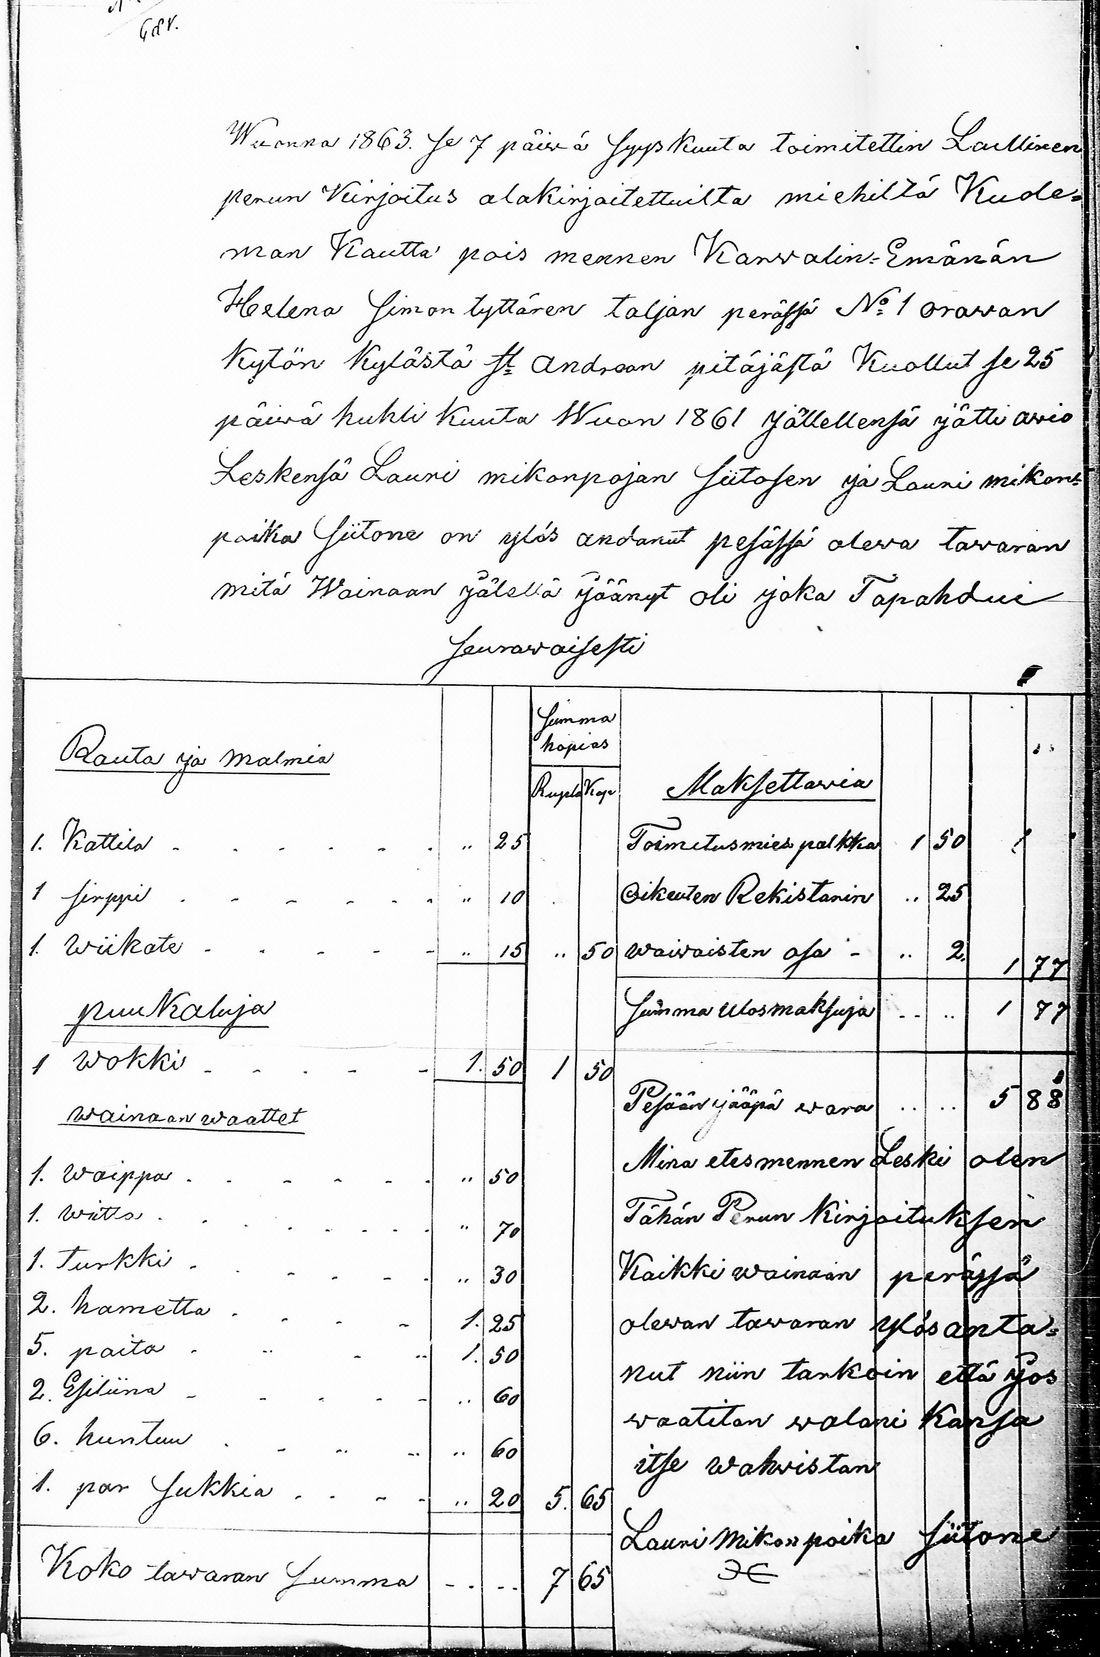 68r.
Wuonna 1863. se 7 päiwä syyskuuta toimitettin Laillinen
perun Kirjoitus alakirjoitettuilta miehiltä Kuole=
man Kautta pois mennen Karwalin=Emänän
Helena Simon tyttären taljan perässä No. 1 orawan
Kytön Kylästä St. Andrean pitäjästä Kuollut se 25
päiwä huhti kuuta Wuon 1861 jällellensä jätti awio
Leskensä Lauri mikonpojan Siitosen ja Lauri mikon=
poika Siitone on ylös andanut pesässä olewa tawaran
mitä Wainaan jälellä jäänyt oli joka Tapahdui
seurawaisesti
Summa
hopias
Rupla Kop
Rauta ja malmia
1. Kattila - - - - - - .. 25
1 sirppi - - - - - - .. 10
1. wiikate - - - - - .. 15 .. 50
puu Kaluja
1 wokki - - - - - 1. 50 1 50
wainaan waattet
1. waippa - - - - - - .. 50
1. wiitta - - - - - - .. 70
1. turkki - - - - - - .. 30
2. hametta - - - - 1. 25
5. paita - .. - .. 1. 50
2. Esiliina - - - - - .. 60
6. huntuu - - .. .. .. 60
1. par sukkia - - - - .. 20 5. 65
Koko tawaran summa - - .. 7 65
Maksettawia
Toimitusmies palkka 1 50
oikeuten Rekistariin .. 25
waiwaisten osa - .. 2. 1 77
summa ulosmaksuja - - .. 1 77
Pesään jääpä wara .. .. 5 88
Minä etesmennen Leski olen
Tähän Perun Kirjoituksen
Kaikki wainaan perässä
olewan tawaran ylösanta=
nut niin tarkoin että jos
waatitan walani Kansa
itse wahwistan
Lauri Mikonpoika Siitone